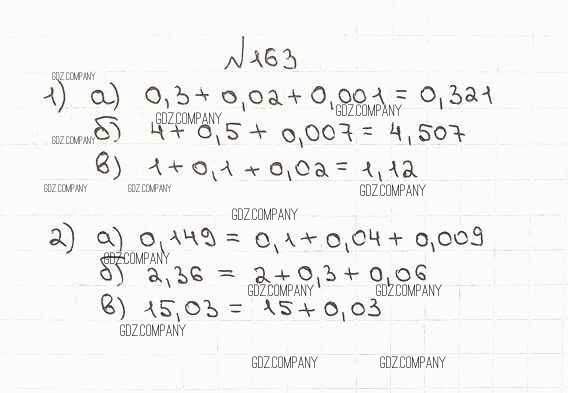 №163
GDZ.COMPANY
1) а) 0,3 + 0,02 + 0,001 = 0,321
GDZ.COMPANY GDZ.COMPANY
б) 4 + 0,5 + 0,007 = 4,507
GDZ.COMPANY
в) 1 + 0,1 + 0,02 = 1,12
GDZ.COMPANY GDZ.COMPANY GDZ.COMPANY
GDZ.COMPANY
2) а) 0,149 = 0,1 + 0,04 + 0,009
GDZ.COMPANY
б) 2,36 = 2 + 0,3 + 0,06
GDZ.COMPANY GDZ.COMPANY
в) 15,03 = 15 + 0,03
GDZ.COMPANY
GDZ.COMPANY GDZ.COMPANY